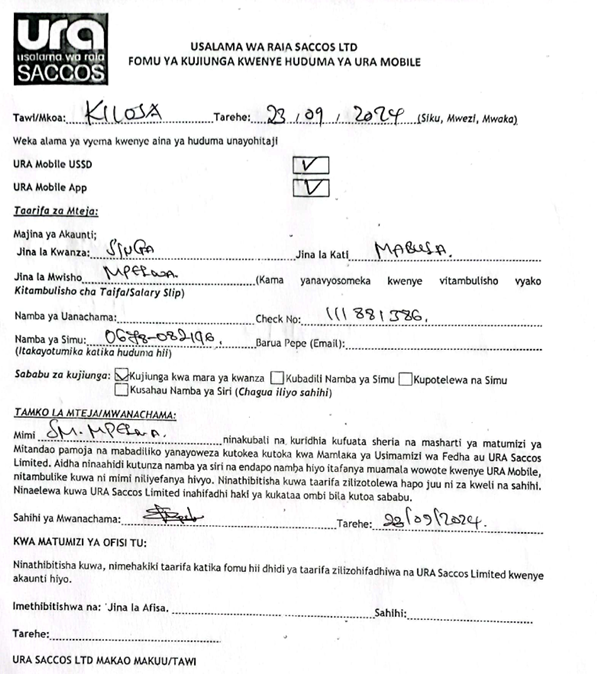 ura
usalama wa raia
SACCOS
USALAMA WA RAIA SACCOS LTD
FOMU YA KUJIUNGA KWENYE HUDUMA YA URA MOBILE
Tawi/Mkoa: KILOSA Tarehe: 23 / 09 / 2024 (Siku, Mwezi, Mwaka)
Weka alama ya vyema kwenye aina ya huduma unayohitaji
URA Mobile USSD ✓
URA Mobile App ✓
Taarifa za Mteja:
Majina ya Akaunti;
Jina la Kwanza: Jina la Kati MABULA.
Jina la Mwisho (Kama yanavyosomeka kwenye vitambulisho vyako
Kitambulisho cha Taifa/Salary Slip)
Namba ya Uanachama: Check No: 111881386.
Namba ya Simu: 0678-082196. Barua Pepe (Email):
(Itakayotumika katika huduma hii)
Sababu za kujiunga: ✓ Kujiunga kwa mara ya kwanza Kubadili Namba ya Simu Kupotelewa na Simu
Kusahau Namba ya Siri (Chagua iliyo sahihi)
TAMKO LA MTEJA/MWANACHAMA:
Mimi ninakubali na kuridhia kufuata sheria na masharti ya matumizi ya
Mitandao pamoja na mabadiliko yanayoweza kutokea kutoka kwa Mamlaka ya Usimamizi wa Fedha au URA Saccos
Limited. Aidha ninaahidi kutunza namba ya siri na endapo namba hiyo itafanya muamala wowote kwenye URA Mobile,
nitambulike kuwa ni mimi niliyefanya hivyo. Ninathibitisha kuwa taarifa zilizotolewa hapo juu ni za kweli na sahihi.
Ninaelewa kuwa URA Saccos Limited inahifadhi haki ya kukataa ombi bila kutoa sababu.
Sahihi ya Mwanachama: Tarehe: 23/09/2024.
KWA MATUMIZI YA OFISI TU:
Ninathibitisha kuwa, nimehakiki taarifa katika fomu hii dhidi ya taarifa zilizohifadhiwa na URA Saccos Limited kwenye
akaunti hiyo.
Imethibitishwa na: Jina la Afisa. Sahihi:
Tarehe:
URA SACCOS LTD MAKAO MAKUU/TAWI